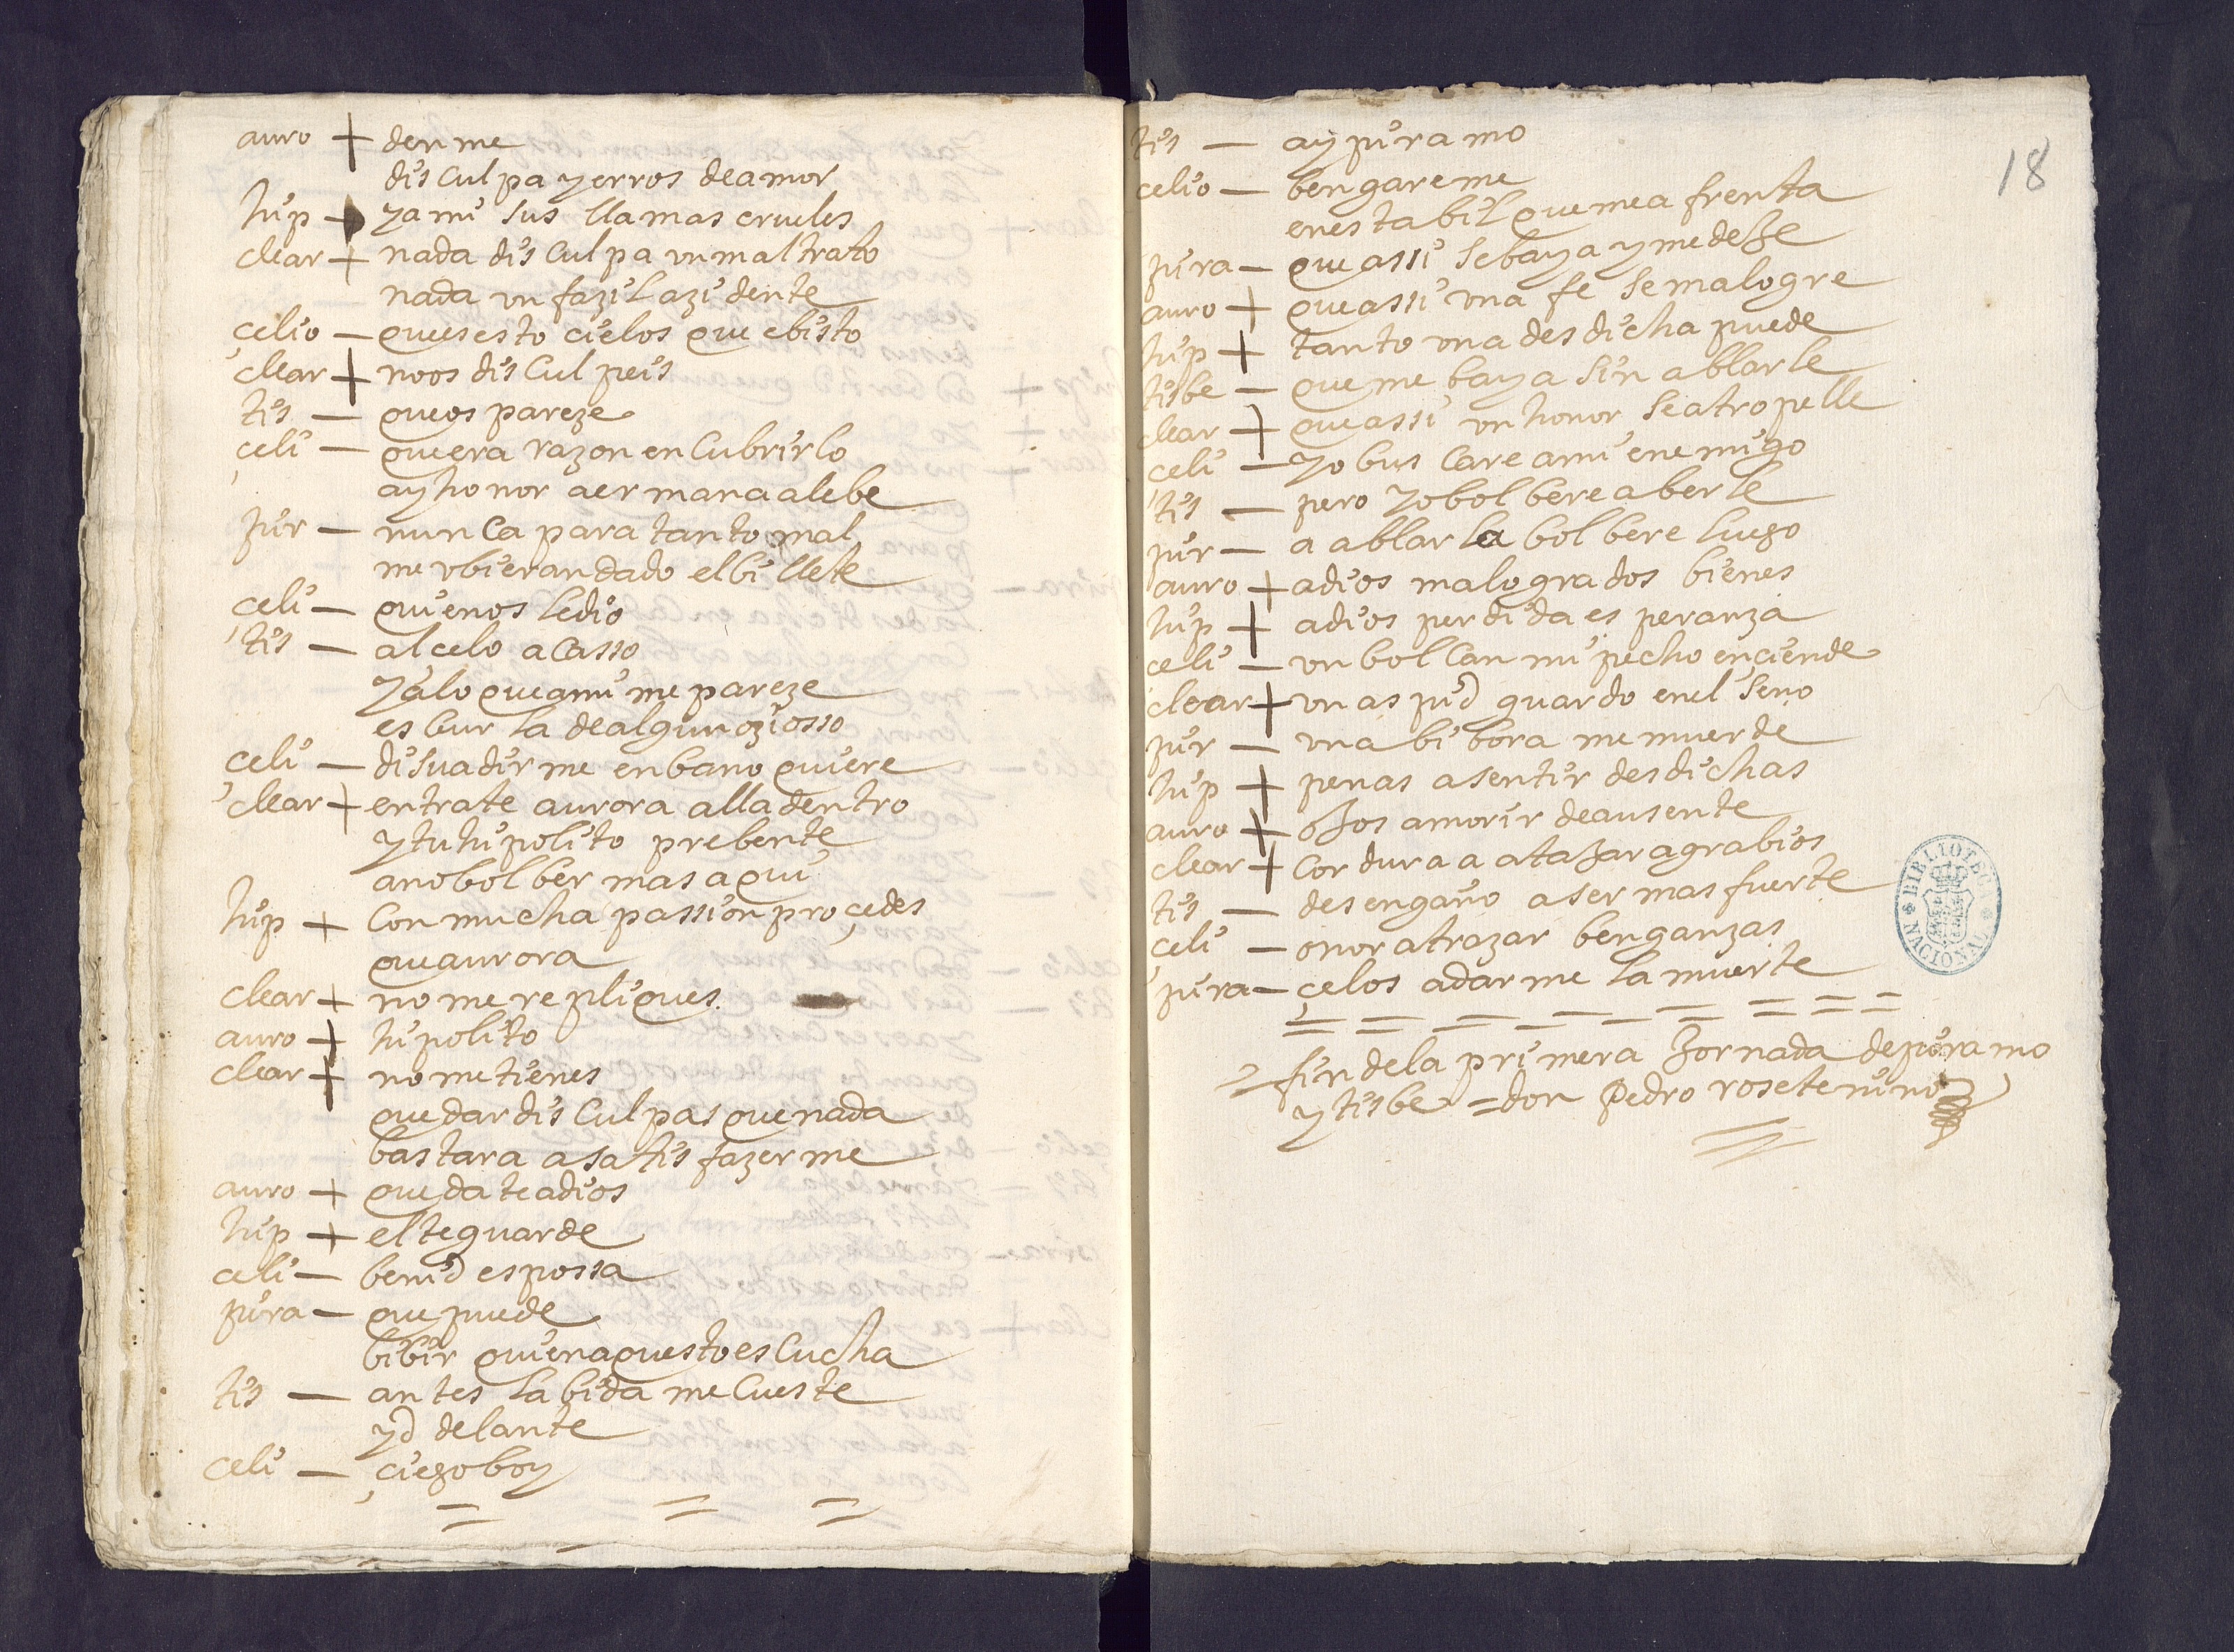 auro + denme
disculpa yerros de amor
hip + ya mi sus llamas crueles
clear + nada disculpa un mal trato
nada un fazil azidente
çelio — ques esto cielos que e bisto
clear + no os disculpeis
tis — que os pareze
çeli — que era razon encubrirlo
ay honor a ermana alebe
pir — nunca para tanto mal
me ubieran dado el billete
celi — quien os le dio
tis — al celo acasso
ya lo que a mi me pareze
es burla de algun oziosso
celi — disuadirme en bano quiere
clear + entrate aurora alla dentro
y tu hipolito prebente
a no bolber mas aqui
hip + con mucha passion proçedes
que aurora
clear + no me repliques
auro + hipolito
clear + no me tienes
que dar disculpas que nada
bastara a satisfazerme
auro + quedate adios
hip + el te guarde
celi — benid espossa
pira — que puede
bibir quien aquesto escucha
tis — antes la bida me cueste
yd delante
celi — çiego boy
18
tis — ay piramo
celio — bengareme
en esta bil que me afrenta
pira — que assi se baya y me deje
auro + que assi una fe se malogre
hip + tanto una desdicha puede
tisbe — que me baya sin ablarle
clear + que assi un honor se atropelle
çeli — yo buscare a mi enemigo
tis — pero yo bolbere a berle
pir — a ablarla bolbere luego
auro + adios malogrados bienes
hip + adios perdida esperanza
celi — un bolcan mi pecho ençiende
clear + un aspid guardo en el seno
pir — una bibora me muerde
hip + penas a sentir desdichas
auro + ojos a morir de ausente
clear + cordura a atajar agrabios
tis — desengaño a ser mas fuerte
çeli — onor a trazar benganzas
pira — çelos a darme la muerte
= fin de la primera jornada de piramo
y tisbe = don Pedro rosete niño
BIBLIOTECA NACIONAL